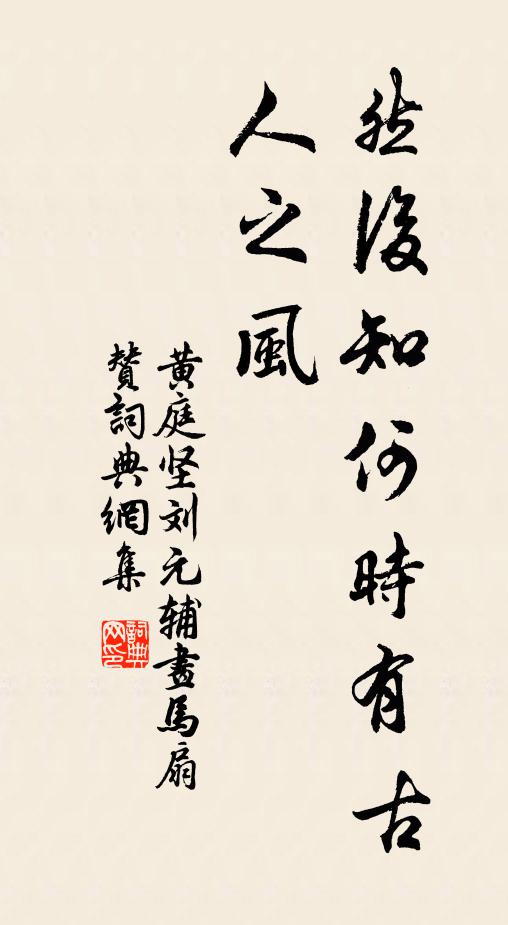 然後知何時有古
人之風
黄庭坚刘元辅畫馬扇
贊詞典網集
詞典
网印